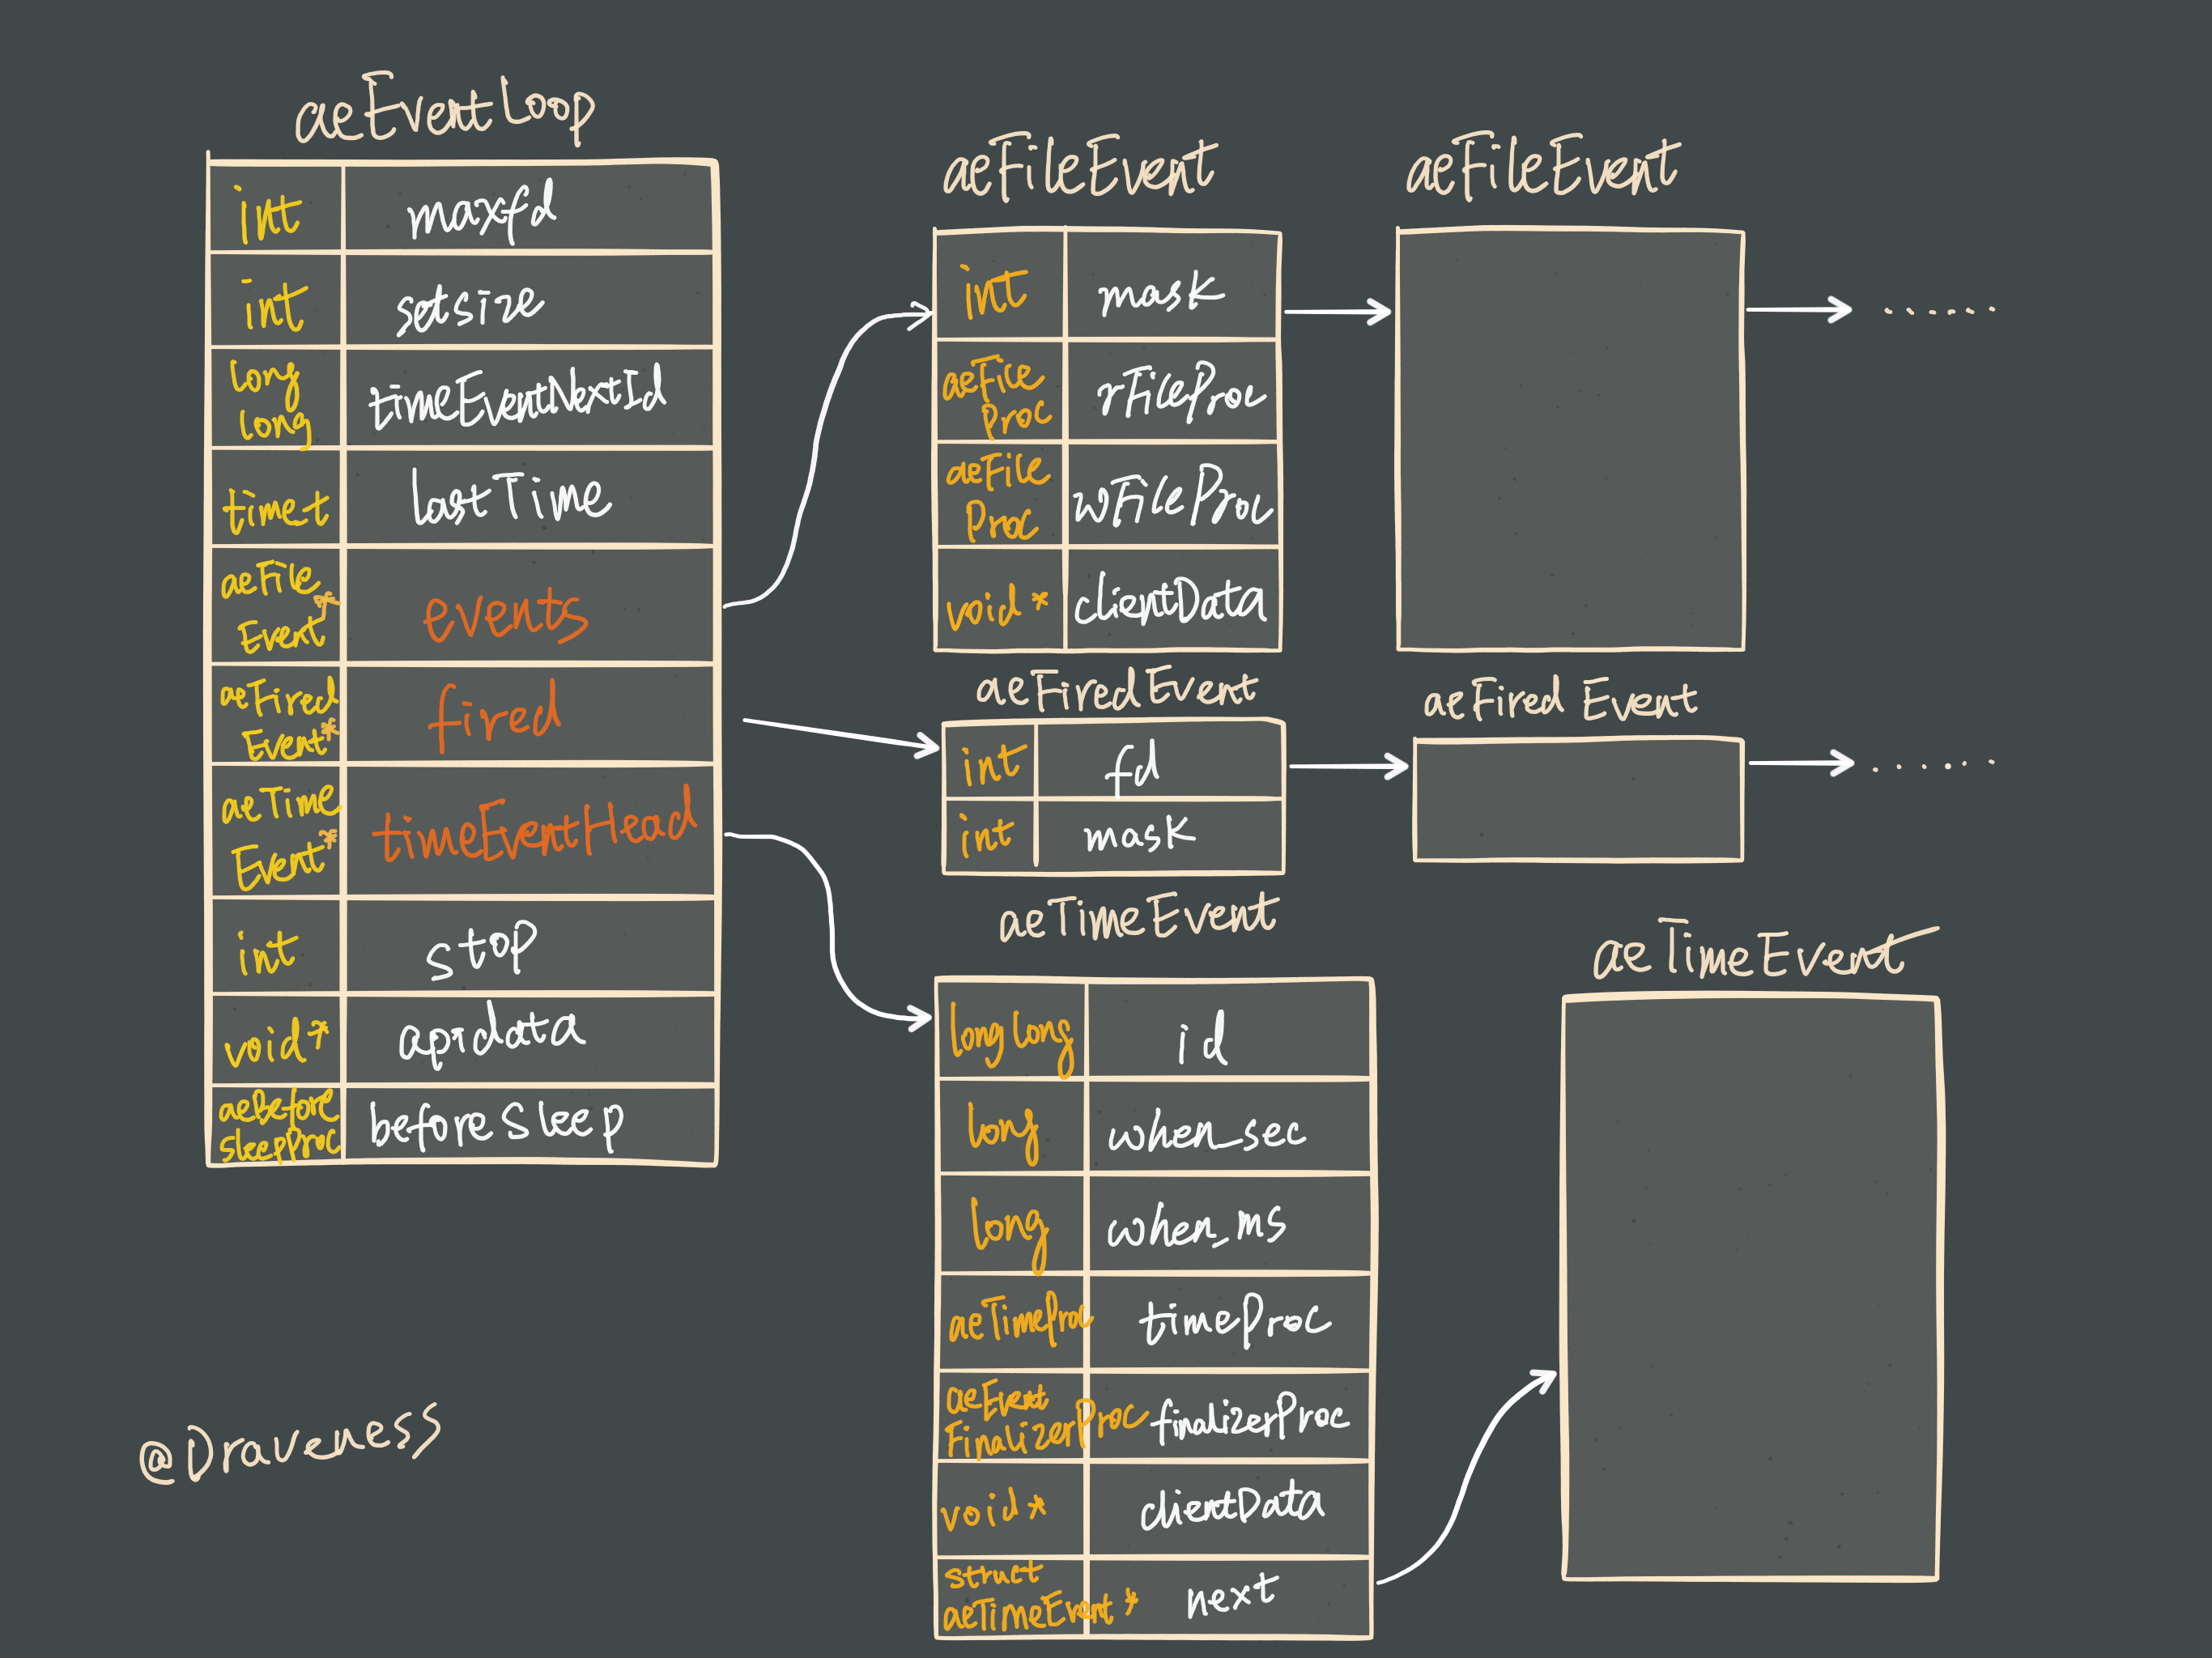 aeEventLoop
int maxfd
int setsize
long
long
timeEventNextId
time_t lastTime
aeFile
Event*
events
aeFired
Event*
fired
aeTime
Event*
timeEventHead
int stop
void* apidata
aeBefore
sleepProc
beforeSleep
aeFileEvent
int mask
aeFile
Proc
rFileProc
aeFile
Proc
wFileProc
void* clientData
aeFileEvent
......
aeFiredEvent
int fd
int mask
aeFired Event
......
aeTimeEvent
long long id
long when_sec
long when_ms
aeTimeProc timeProc
aeEvent
FinalizerProc
finalizerProc
void* clientData
struct
aeTimeEvent*
next
aeTimeEvent
@Draveness